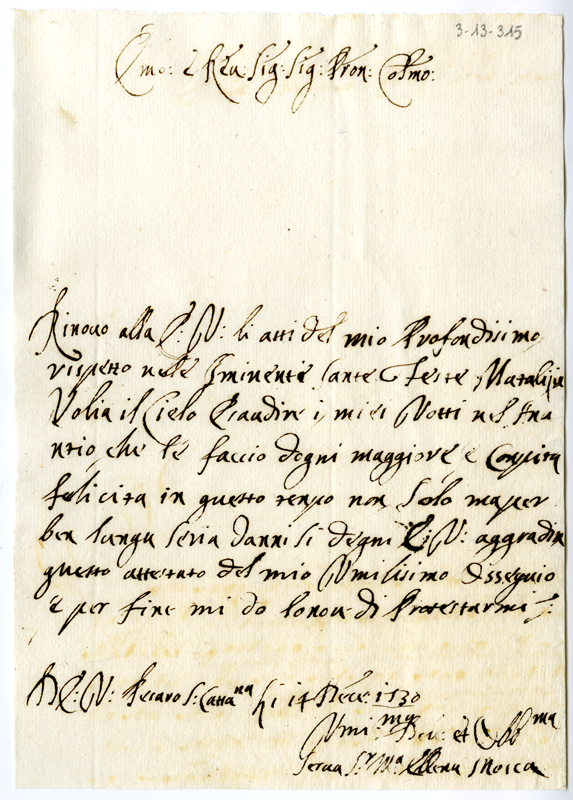 3-13-315
Emo: e Rea: Sig: Sig: Pron: Cosmo:
Rinovo alla E: V: li atti del mio Profondisimo
rispetto nele Iminente Sante Feste Natalizie
Volia il Cielo Esaudire i miei Votti nel
ntio che le faccio dogni maggiore e Conpita
felicita in questo tenpo non solo ma per
ben lunga seria danni si degni E: V: aggradir
questo attestato del mio Umilisimo Ossequio
e per fine mi do lonore di Protestarmi
D E: V: Pesaro S: Catta na li 14 Dece: 1730
Umi: ma Dev: et Obb ma
Serva Sr Ma Ellena Mosca